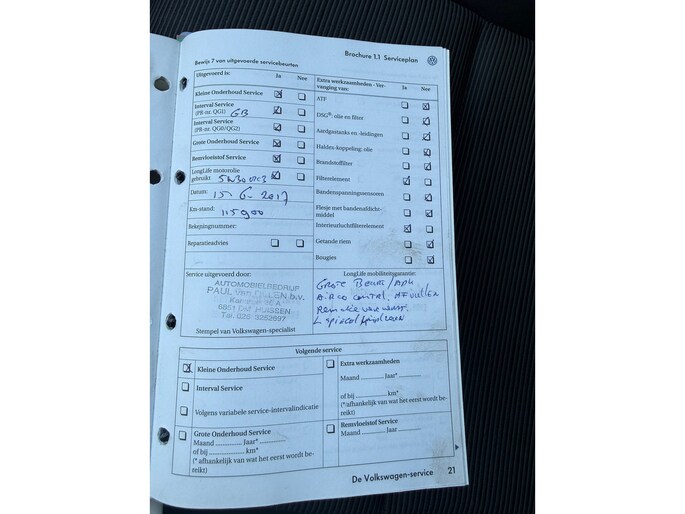 Brochure 1.1 Serviceplan
Bewijs 7 van uitgevoerde servicebeurten
Uitgevoerd is: Ja Nee
Kleine Onderhoud Service
Interval Service
(PR-nr. QG1) GB
Interval Service
(PR-nr. QG0/QG2)
Grote Onderhoud Service
Remvloeistof Service
LongLife motorolie
gebruikt 5W30
Datum: 15-6-2017
Km-stand: 115900
Rekeningnummer:
Reparatieadvies
Extra werkzaamheden - Ver-
vanging van: Ja Nee
ATF
DSG®: olie en filter
Aardgastanks en -leidingen
Haldex-koppeling: olie
Brandstoffilter
Filterelement
Bandenspanningssensoren
Flesje met bandenafdicht-
middel
Interieurluchtfilterelement
Getande riem
Bougies
Service uitgevoerd door:
AUTOMOBIELBEDRIJF
PAUL b.v.
6851 DM HUISSEN
Tel. 026-3252697
Stempel van Volkswagen-specialist
LongLife mobiliteitsgarantie:
GROTE BEURT/APK
AIRCO CONTRL. AFVULLEN
Volgende service
Kleine Onderhoud Service
Interval Service
Volgens variabele service-intervalindicatie
Grote Onderhoud Service
Maand ............ Jaar* ............
of bij ............ km*
(* afhankelijk van wat het eerst wordt be-
reikt)
Extra werkzaamheden
Maand ............ Jaar* ............
of bij ............ km*
(* afhankelijk van wat het eerst wordt be-
reikt)
Remvloeistof Service
Maand ............ Jaar ............
De Volkswagen-service 21